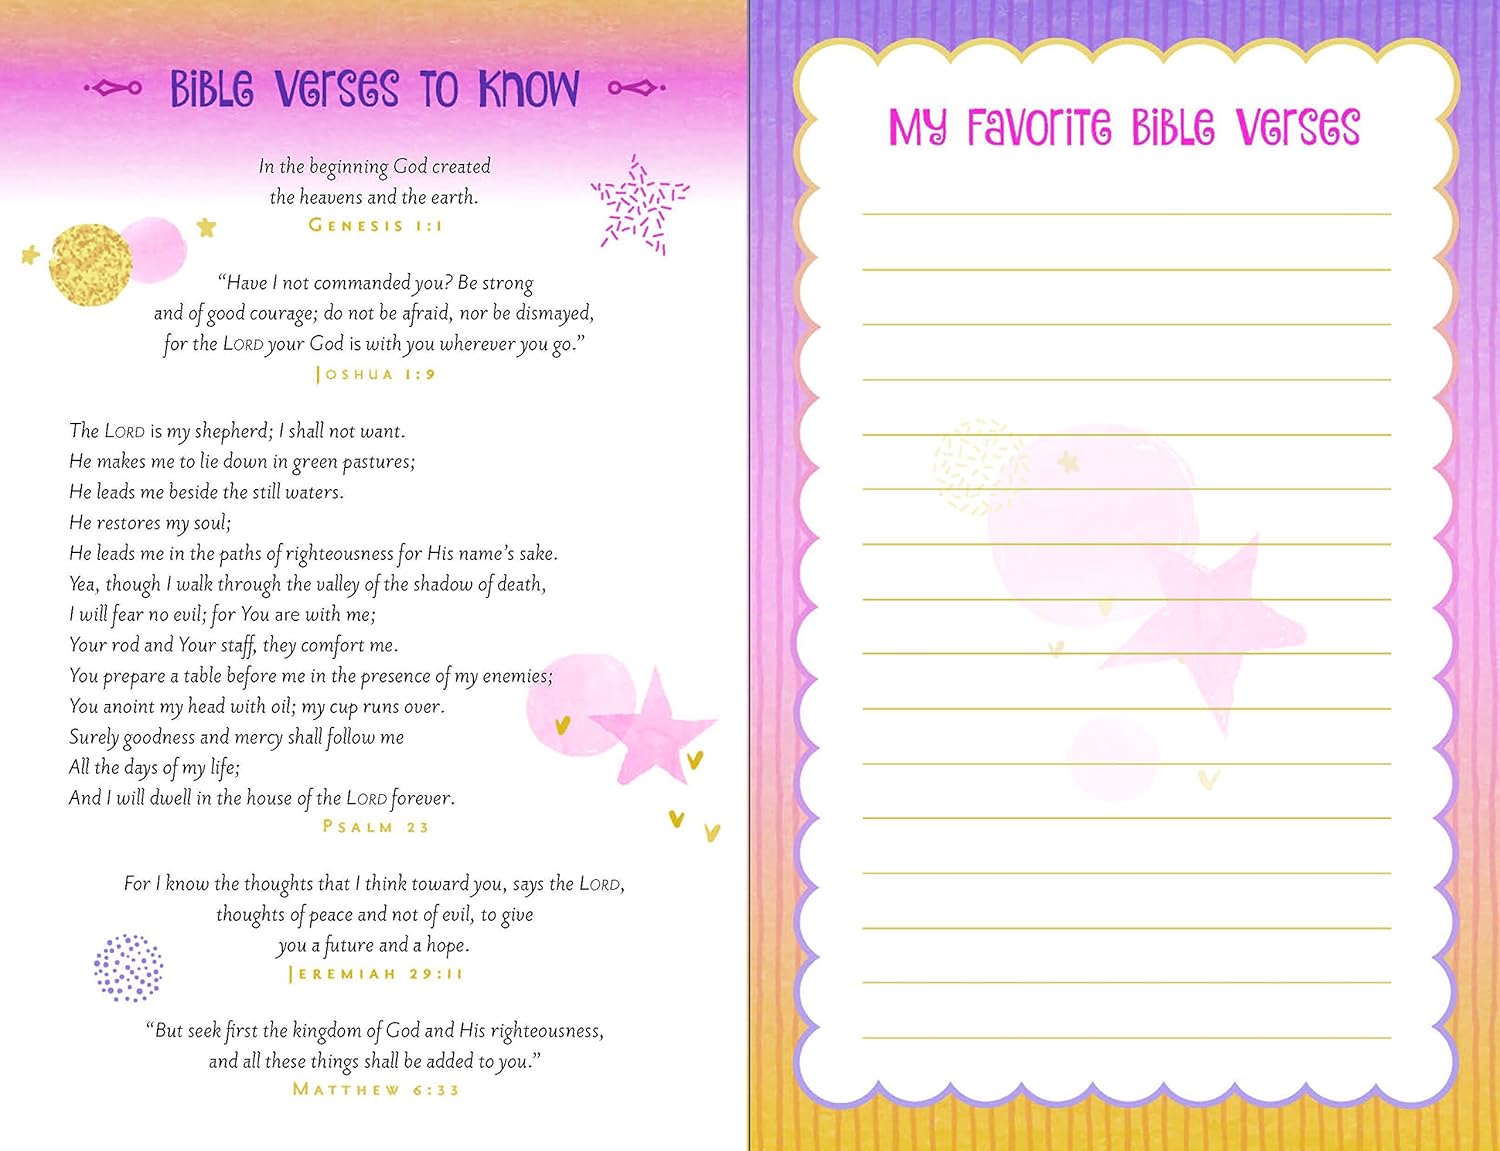 Bible Verses to Know
In the beginning God created
the heavens and the earth.
Genesis 1:1
“Have I not commanded you? Be strong
and of good courage; do not be afraid, nor be dismayed,
for the LORD your God is with you wherever you go.”
Joshua 1:9
The LORD is my shepherd; I shall not want.
He makes me to lie down in green pastures;
He leads me beside the still waters.
He restores my soul;
He leads me in the paths of righteousness for His name’s sake.
Yea, though I walk through the valley of the shadow of death,
I will fear no evil; for You are with me;
Your rod and Your staff, they comfort me.
You prepare a table before me in the presence of my enemies;
You anoint my head with oil; my cup runs over.
Surely goodness and mercy shall follow me
All the days of my life;
And I will dwell in the house of the LORD forever.
Psalm 23
For I know the thoughts that I think toward you, says the LORD,
thoughts of peace and not of evil, to give
you a future and a hope.
Jeremiah 29:11
“But seek first the kingdom of God and His righteousness,
and all these things shall be added to you.”
Matthew 6:33
My Favorite Bible Verses